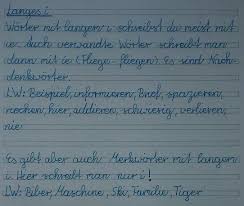 Langes i
Wörter mit langem i schreibst du meist mit
ie. Auch verwandte Wörter schreibt man
dann mit ie (Fliege - fliegen). Es sind Nach-
denkwörter.
LW: Beispiel, informieren, Brief, spazieren,
riechen, hier, addieren, schwierig, verlieren,
nie
Es gibt aber auch Merkwörter mit langem
i. Hier schreibt man nur i!
LW: Biber, Maschine, Ski, Familie, Tiger